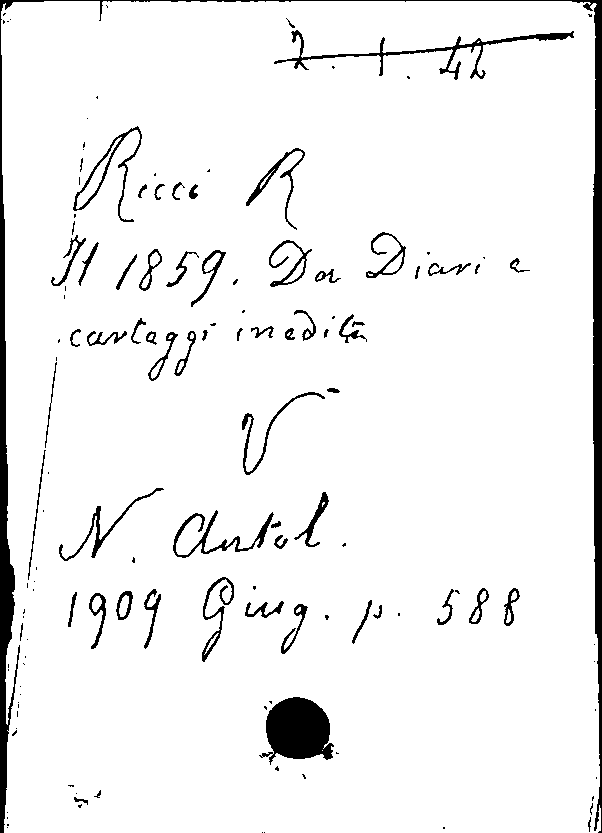 2. 1. 42
Ricci R
Il 1859. Da Diari e
carteggi inediti
V
N. Antol.
1909 Giug. p. 588